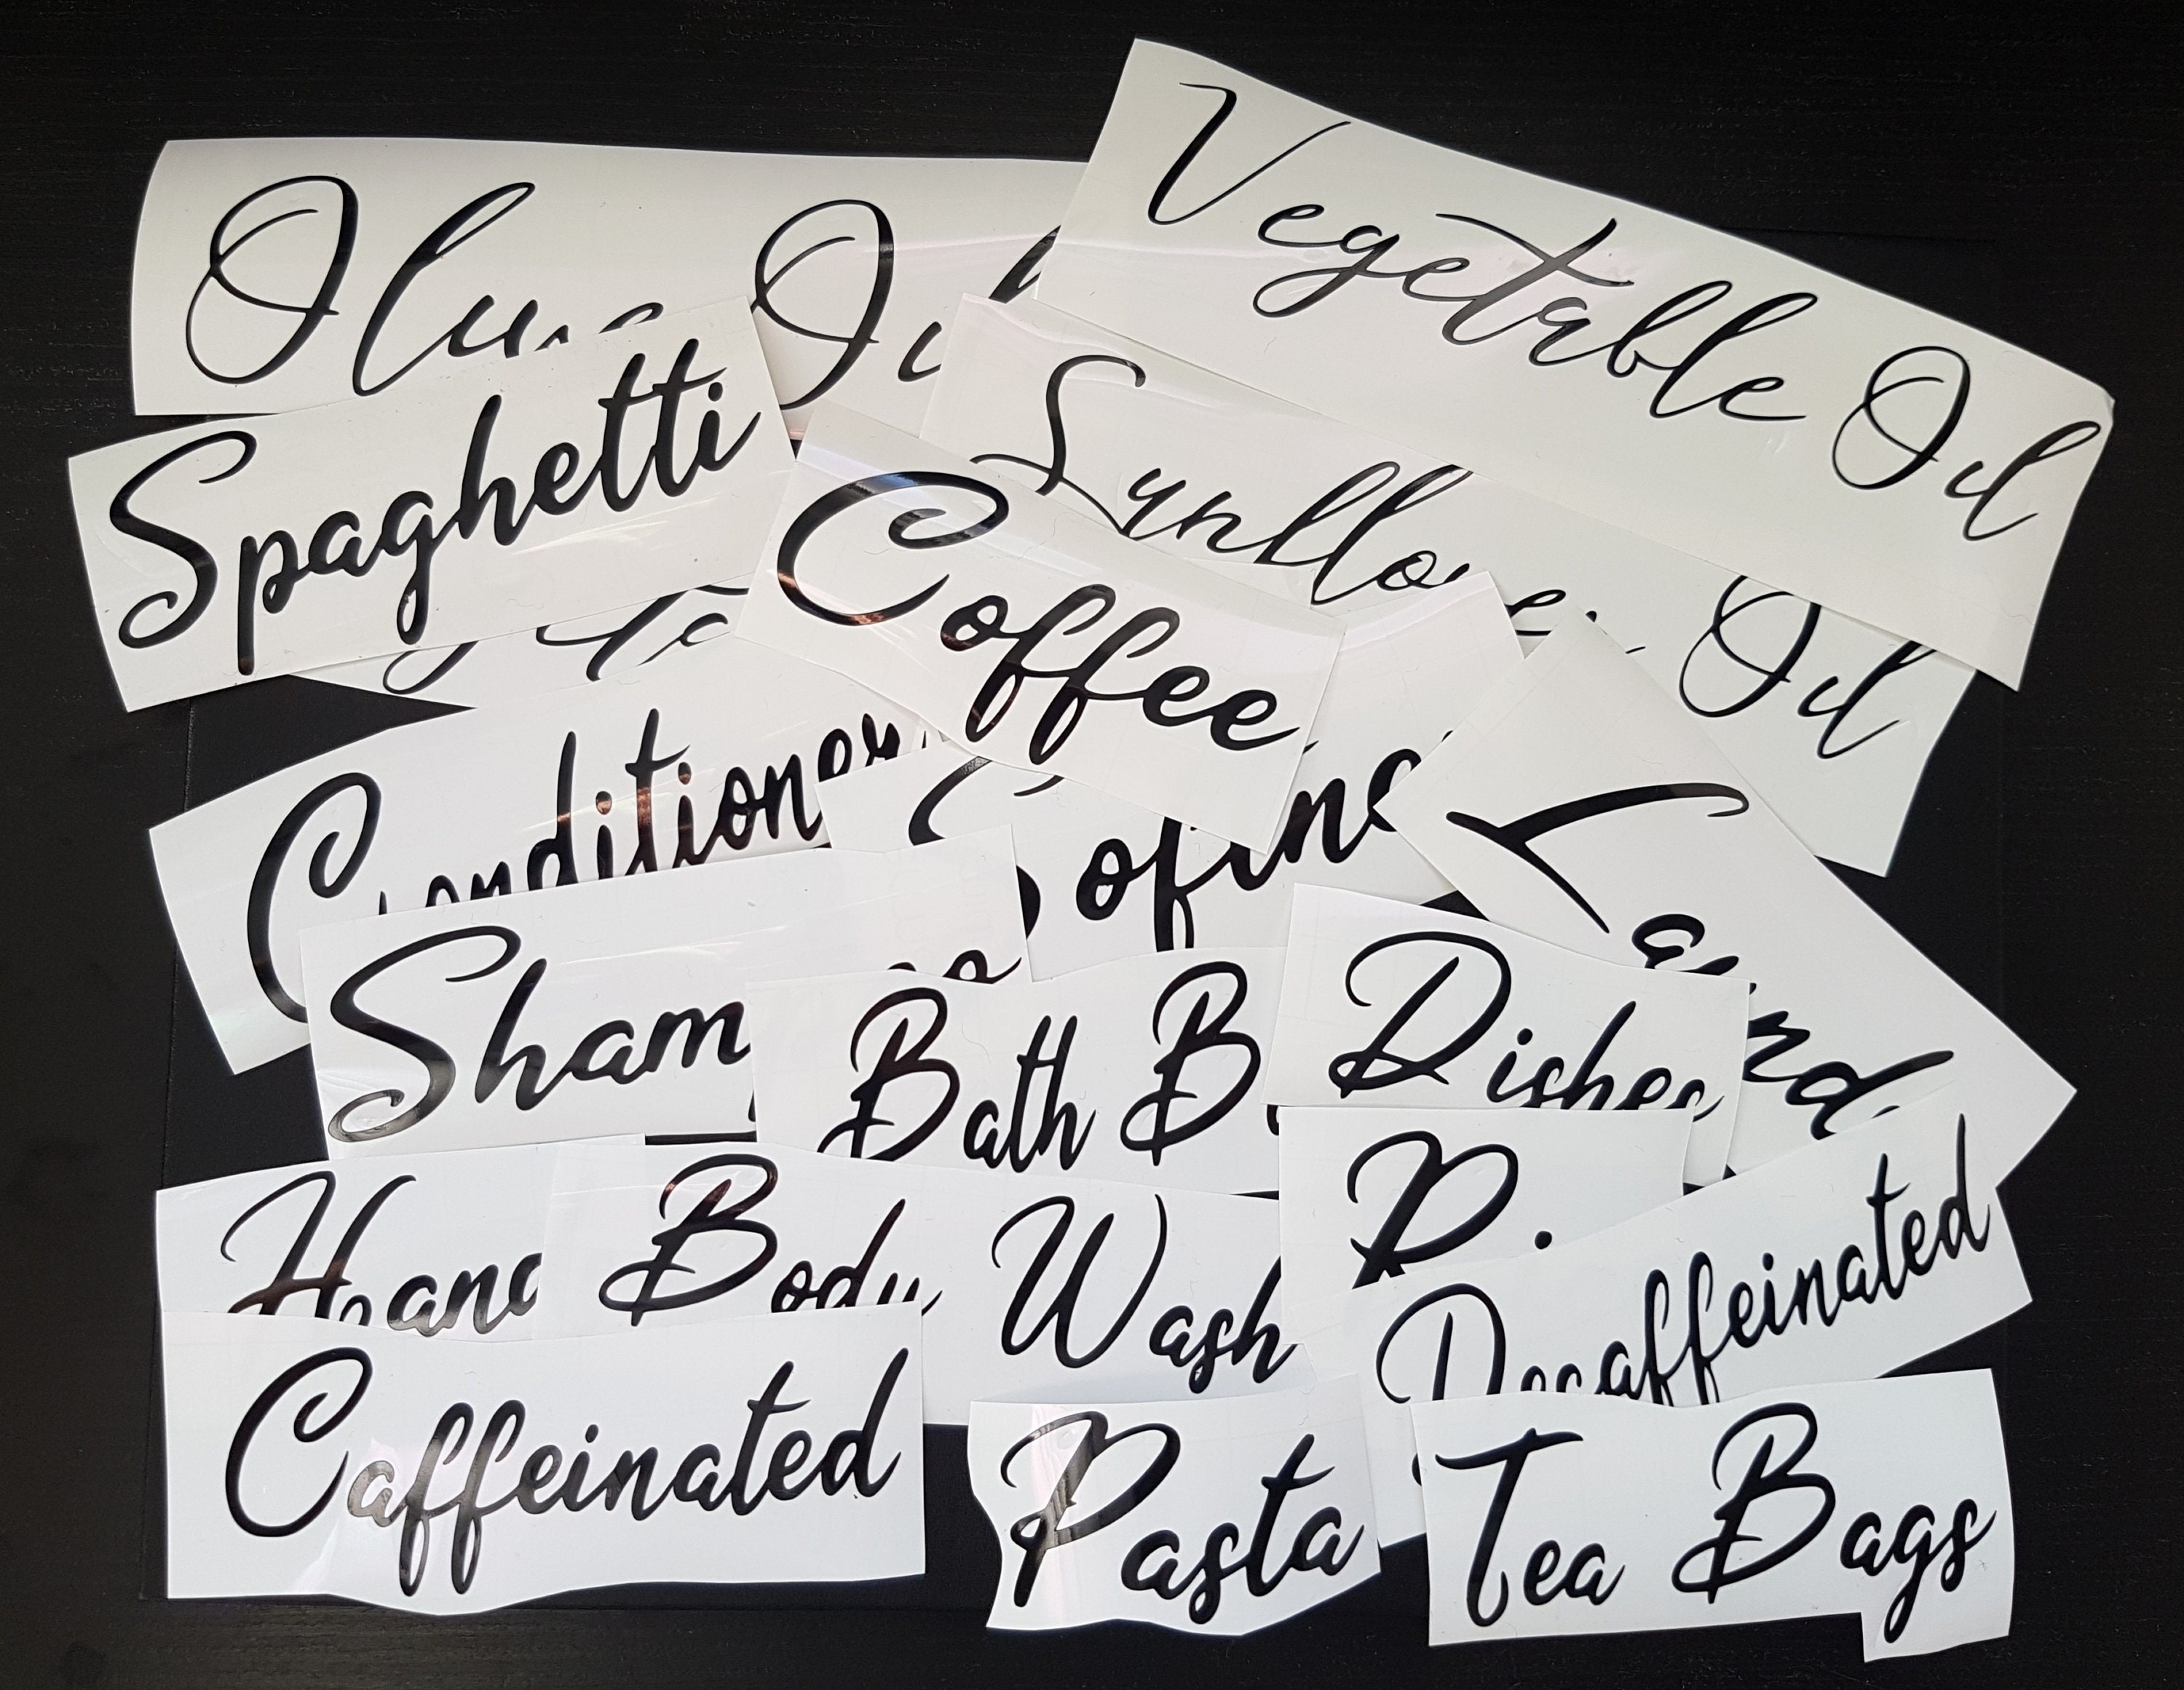 Vegetable Oil
Olive Oil
Spaghetti
Sunflower Oil
Coffee
Conditioner
Sham
Bath B
Dishes
Hand
Body Wash
Decaffeinated
Caffeinated
Pasta
Tea Bags